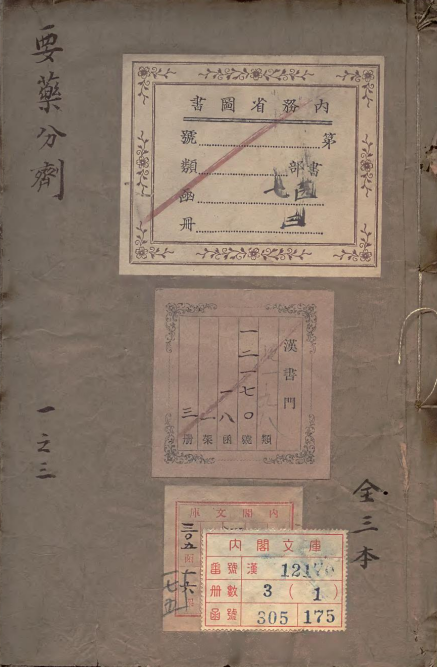 要藥分劑
一之三
全三本
內務省圖書
第 號
書部 類
函
三 冊
漢書門
類
一二一七〇 號
一八 函
一 架
三 册
內閣文庫
三〇五
一七五
內閣文庫
番號 漢 12170
冊數 3 (1)
函號 305 175